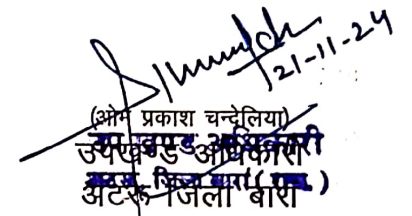 21-11-24
(ओम प्रकाश चन्देलिया)
उपखण्ड अधिकारी
अटरू जिला बारां (राज.)